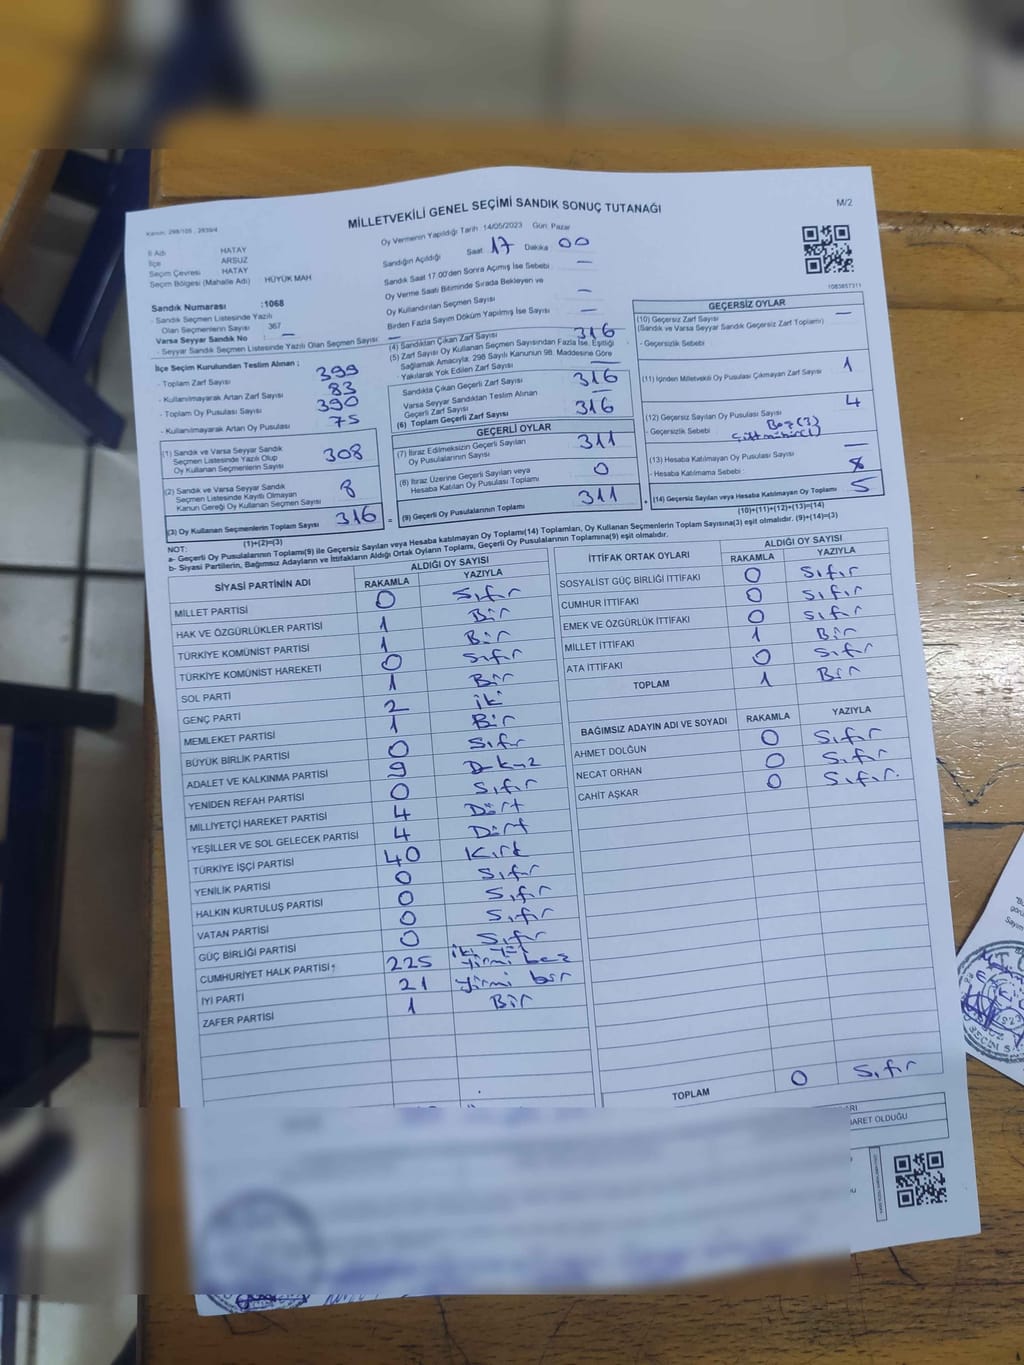 MİLLETVEKİLİ GENEL SEÇİMİ SANDIK SONUÇ TUTANAĞI
M/2
Oy Vermenin Yapıldığı Tarih :14/05/2023 Gün: Pazar
İl Adı HATAY
İlçe ARSUZ
Seçim Çevresi HATAY
Seçim Bölgesi (Mahalle Adı) HÜYÜK MAH
Sandık Numarası :1068
- Sandık Seçmen Listesinde Yazılı
Olan Seçmenlerin Sayısı 367
Varsa Seyyar Sandık No —
- Seyyar Sandık Seçmen Listesinde Yazılı Olan Seçmen Sayısı —
Sandığın Açıldığı Saat 17 Dakika 00
Sandık Saat 17.00'den Sonra Açılmış İse Sebebi —
Oy Verme Saati Bitiminde Sırada Bekleyen ve
Oy Kullandırılan Seçmen Sayısı —
Birden Fazla Sayım Döküm Yapılmış İse Sayısı —
1083857311
İlçe Seçim Kurulundan Teslim Alınan :
- Toplam Zarf Sayısı 399
- Kullanılmayarak Artan Zarf Sayısı 83
- Toplam Oy Pusulası Sayısı 390
- Kullanılmayarak Artan Oy Pusulası 75
(1) Sandık ve Varsa Seyyar Sandık
Seçmen Listesinde Yazılı Olup
Oy Kullanan Seçmenlerin Sayısı 308
(2) Sandık ve Varsa Seyyar Sandık
Seçmen Listesinde Kayıtlı Olmayan
Kanun Gereği Oy Kullanan Seçmen Sayısı 8
(3) Oy Kullanan Seçmenlerin Toplam Sayısı 316
(1)+(2)=(3)
(4) Sandıktan Çıkan Zarf Sayısı 316
(5) Zarf Sayısı Oy Kullanan Seçmen Sayısından Fazla İse, Eşitliği
Sağlamak Amacıyla; 298 Sayılı Kanunun 98. Maddesine Göre
- Yakılarak Yok Edilen Zarf Sayısı —
Sandıkta Çıkan Geçerli Zarf Sayısı 316
Varsa Seyyar Sandıktan Teslim Alınan
Geçerli Zarf Sayısı —
(6) Toplam Geçerli Zarf Sayısı 316
GEÇERLİ OYLAR
(7) İtiraz Edilmeksizin Geçerli Sayılan
Oy Pusulalarının Sayısı 311
(8) İtiraz Üzerine Geçerli Sayılan veya
Hesaba Katılan Oy Pusulası Toplamı 0
= (9) Geçerli Oy Pusulalarının Toplamı 311
GEÇERSİZ OYLAR
(10) Geçersiz Zarf Sayısı —
(Sandık ve Varsa Seyyar Sandık Geçersiz Zarf Toplamı)
- Geçersizlik Sebebi
(11) İçinden Milletvekili Oy Pusulası Çıkmayan Zarf Sayısı 1
(12) Geçersiz Sayılan Oy Pusulası Sayısı 4
- Geçersizlik Sebebi Boş(3)
Çift mühür(1)
(13) Hesaba Katılmayan Oy Pusulası Sayısı —
- Hesaba Katılmama Sebebi :
+ (14) Geçersiz Sayılan veya Hesaba Katılmayan Oy Toplamı 5
(10)+(11)+(12)+(13)=(14)
NOT:
a- Geçerli Oy Pusulalarının Toplamı(9) ile Geçersiz Sayılan veya Hesaba katılmayan Oy Toplamı(14) Toplamları, Oy Kullanan Seçmenlerin Toplam Sayısına(3) eşit olmalıdır. (9)+(14)=(3)
b- Siyasi Partilerin, Bağımsız Adayların ve İttifakların Aldığı Ortak Oyların Toplamı, Geçerli Oy Pusulalarının Toplamına(9) eşit olmalıdır.
SİYASİ PARTİNİN ADI ALDIĞI OY SAYISI
RAKAMLA YAZIYLA
MİLLET PARTİSİ 0 Sıfır
HAK VE ÖZGÜRLÜKLER PARTİSİ 1 Bir
TÜRKİYE KOMÜNİST PARTİSİ 1 Bir
TÜRKİYE KOMÜNİST HAREKETİ 0 Sıfır
SOL PARTİ 1 Bir
GENÇ PARTİ 2 iki
MEMLEKET PARTİSİ 1 Bir
BÜYÜK BİRLİK PARTİSİ 0 Sıfır
ADALET VE KALKINMA PARTİSİ 9 Dokuz
YENİDEN REFAH PARTİSİ 0 Sıfır
MİLLİYETÇİ HAREKET PARTİSİ 4 Dört
YEŞİLLER VE SOL GELECEK PARTİSİ 4 Dört
TÜRKİYE İŞÇİ PARTİSİ 40 Kırk
YENİLİK PARTİSİ 0 Sıfır
HALKIN KURTULUŞ PARTİSİ 0 Sıfır
VATAN PARTİSİ 0 Sıfır
GÜÇ BİRLİĞİ PARTİSİ 0 Sıfır
CUMHURİYET HALK PARTİSİ 225 iki yüz yirmi beş
İYİ PARTİ 21 yirmi bir
ZAFER PARTİSİ 1 Bir
İTTİFAK ORTAK OYLARI ALDIĞI OY SAYISI
RAKAMLA YAZIYLA
SOSYALİST GÜÇ BİRLİĞİ İTTİFAKI 0 Sıfır
CUMHUR İTTİFAKI 0 Sıfır
EMEK VE ÖZGÜRLÜK İTTİFAKI 0 Sıfır
MİLLET İTTİFAKI 1 Bir
ATA İTTİFAKI 0 Sıfır
TOPLAM 1 Bir
BAĞIMSIZ ADAYIN ADI VE SOYADI RAKAMLA YAZIYLA
AHMET DOLĞUN 0 Sıfır
NECAT ORHAN 0 Sıfır
CAHİT AŞKAR 0 Sıfır.
TOPLAM 0 Sıfır